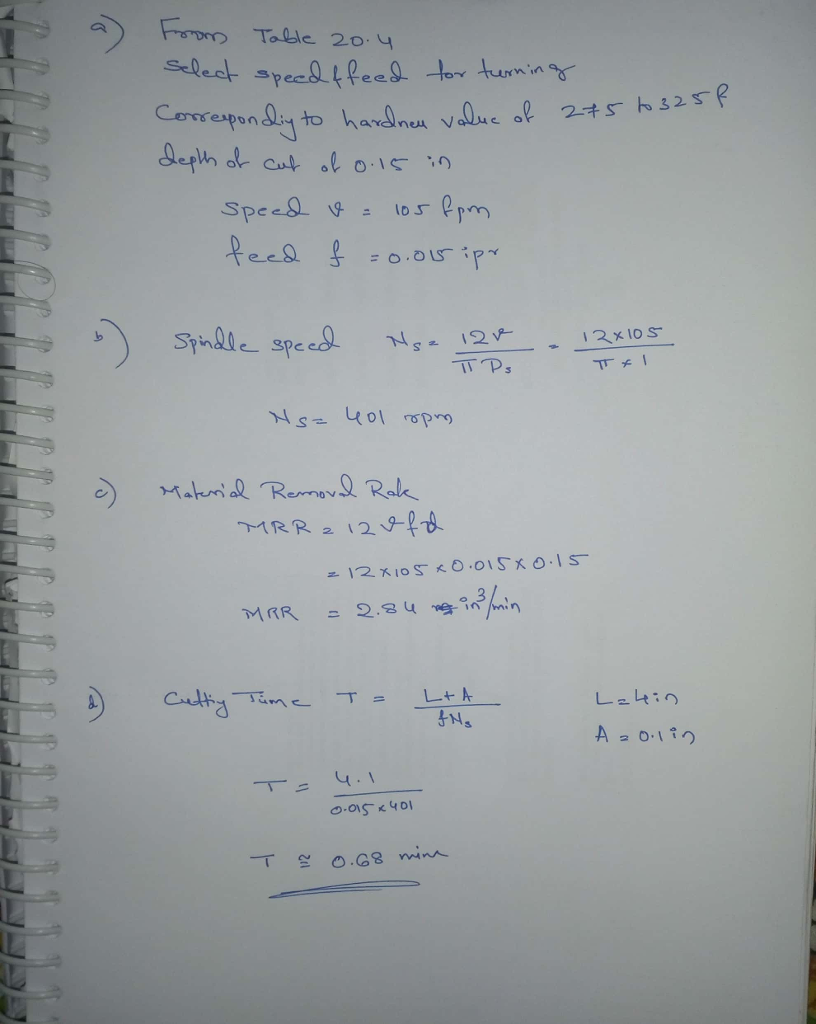 a) From Table 20.4
Select speed & feed for turning
Corresponding to hardness value of 275 to 325 &
depth of cut of 0.15 in
Speed v = 105 fpm
feed f = 0.015 ipr
b) Spindle speed Ns = 12v / πDs = 12×105 / π×1
Ns = 401 rpm
c) Material Removal Rate
MRR = 12vfd
= 12×105×0.015×0.15
MRR = 2.84 in³/min
d) Cutting Time T = L+A / fNs L=4in
A = 0.1in
T = 4.1 / 0.015×401
T ≅ 0.68 mins